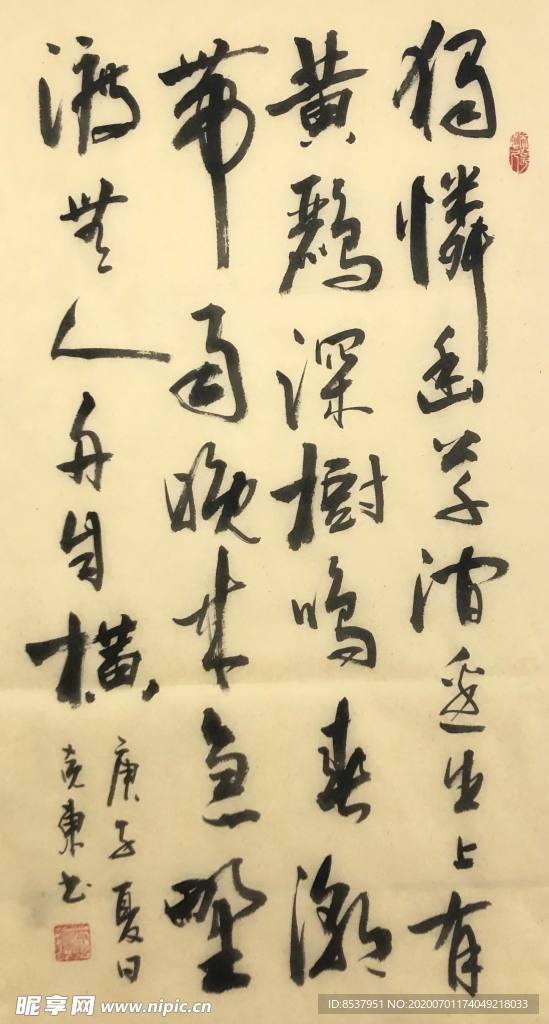 獨憐幽草澗邊生上有
黄鸝深樹鳴春潮
帶雨晚来急野
渡無人舟自橫
庚子夏日
克東书
昵享网 www.nipic.cn
ID:8537951 NO:20200701174049218033